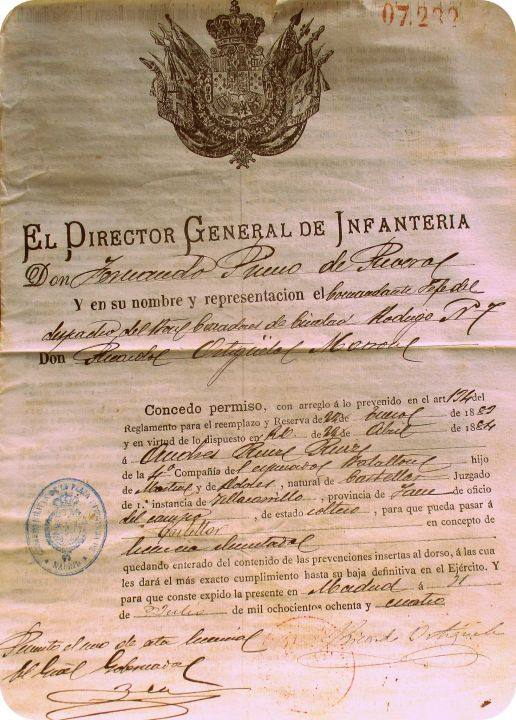 07.232
EL DIRECTOR GENERAL DE INFANTERIA
Don Fernando Primo de Rivera
Y en su nombre y representacion el Comandante Jefe del
del Bon Cazadores de Ciudad Rodrigo Nº 7
Don Ricardo Ortigüela
Concedo permiso, con arreglo á lo prevenido en el art 134 del
Reglamento para el reemplazo y Reserva de 22 de Enero de 1883
y en virtud de lo dispuesto en de 22 de Abril de 1884
á Andres
de la 4ª Compañía del Batallon hijo
de y Dolores, natural de Castellar Juzgado
de 1.ª instancia de Villacarrillo, provincia de Jaen de oficio
del campo, de estado soltero, para que pueda pasar á
Castellar en concepto de
licencia ilimitada
quedando enterado del contenido de las prevenciones insertas al dorso, á las cua
les dará el más exacto cumplimiento hasta su baja definitiva en el Ejército. Y
para que conste expido la presente en Madrid á 21
de Julio de mil ochocientos ochenta y cuatro
Ricardo Ortigüela
el uso de esta licencia
Gobernador
MADRID